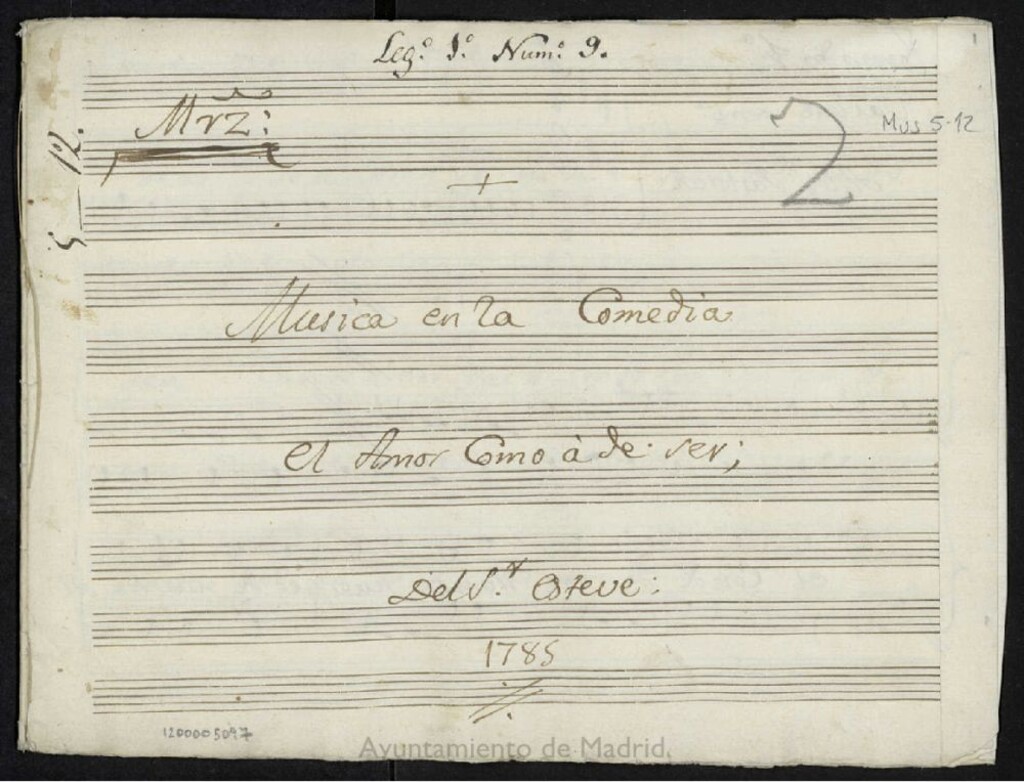 Leg.º 1.º Num.º 9.
Mrz:
2
Mus 5-12
5_12.
+
Musica en la Comedia
el Amor Como à de ser;
Del S.r Esteve:
1785
1200005097
Ayuntamiento de Madrid.